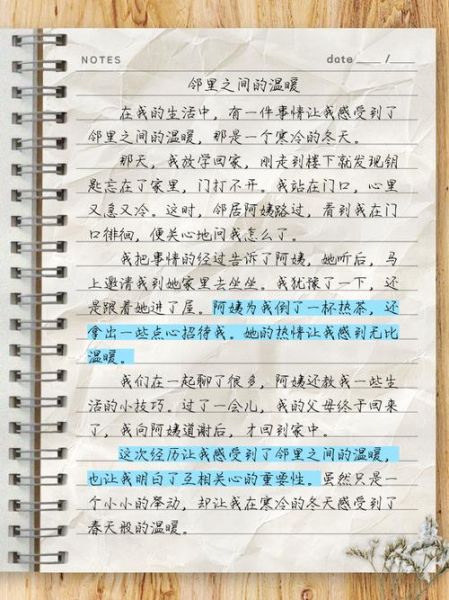 NOTES date ____ /____
邻里之间的温暖
在我的生活中，有一件事情让我感受到了
邻里之间的温暖，那是一个寒冷的冬天。
那天，我放学回家，刚走到楼下就发现钥
匙忘在了家里，门打不开。我站在门口，心里
又急又冷。这时，邻居阿姨路过，看到我在门
口徘徊，便关心地问我怎么了。
我把事情的经过告诉了阿姨，她听后，马
上邀请我到她家里去坐坐。我犹豫了一下，还
是跟着她进了屋。阿姨为我倒了一杯热茶，还
拿出一些点心招待我。她的热情让我感到无比
温暖。
我们在一起聊了很多，阿姨还教我一些生
活的小技巧。过了一会儿，我的父母终于回来
了，我向阿姨道谢后，才回到家中。
这次经历让我感受到了邻里之间的温暖，
也让我明白了互相关心的重要性。虽然只是一
个小小的举动，却让我在寒冷的冬天感受到了
春天般的温暖。